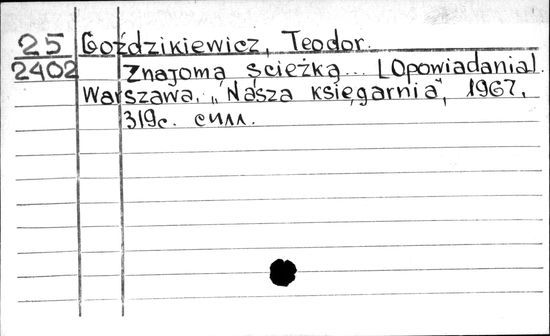 25 Goździkiewicz, Teodor.
2402 Znajomą ścieżką... [Opowiadania].
Warszawa, "Nasza księgarnia", 1967.
319с. силл.